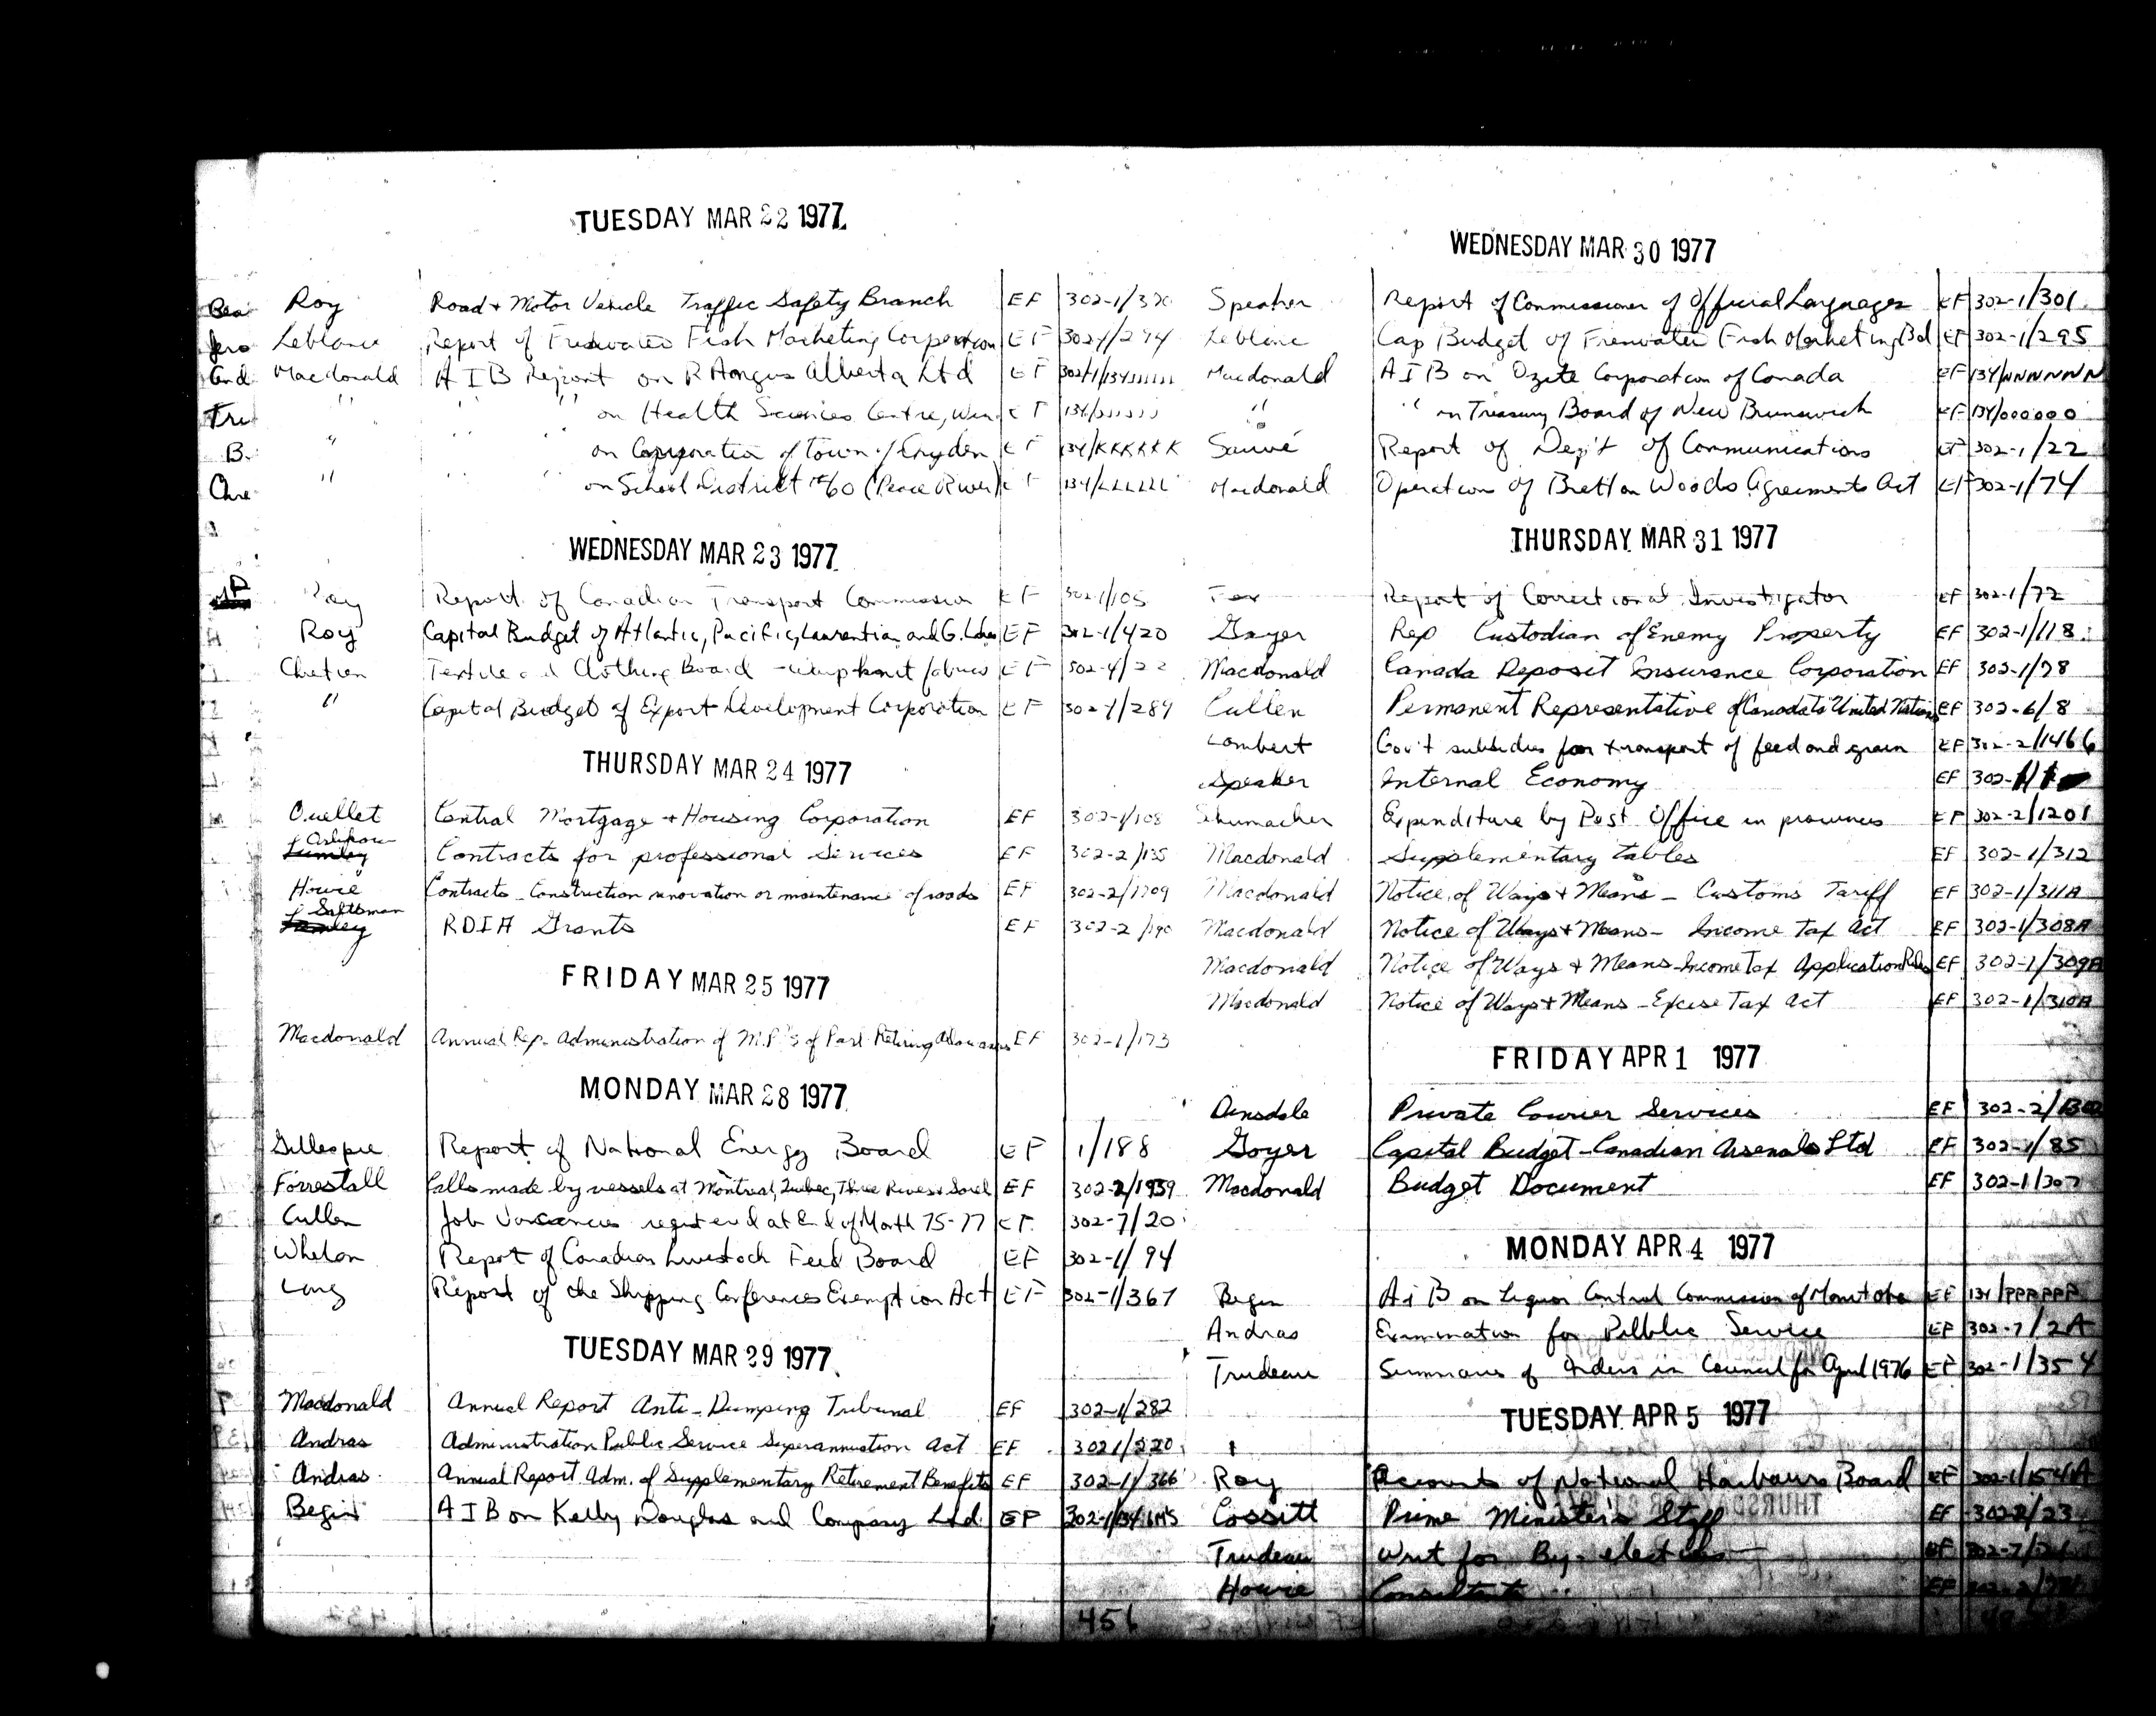 TUESDAY MAR 22 1977
Roy Road + Motor Vehicle Traffic Safety Branch EF 302-1/370
Leblanc Report of Freshwater Fish Marketing Corporation EF 302-1/294
Macdonald A I B Report on R Angus Alberta Ltd EF 302-1/134
" " " on Health Sciences Centre, EF 134/JJJJJJ
" " " on Corporation of Town of Dryden EF 134/KKKKKK
" " " on School District #60 (Peace River) EF 134/LLLLLL
WEDNESDAY MAR 23 1977
Roy Report of Canadian Transport Commission EF 302-1/105
Roy Capital Budget of Atlantic, Pacific, Laurentian and G. Lakes EF 302-1/420
Chretien Textile and Clothing Board - warp knit fabrics EF 302-4/22
" Capital Budget of Export Development Corporation EF 302-1/289
THURSDAY MAR 24 1977
Ouellet Central Mortgage + Housing Corporation EF 302-1/108
Contracts for professional Services EF 302-2/135
Howie Contracts - Construction renovation or maintenance of roads EF 302-2/1709
f Saltsman
RDIA Grants EF 302-2/190
FRIDAY MAR 25 1977
Macdonald Annual Rep - Administration of M.P's of Parl. Retiring Allowances EF 302-1/173
MONDAY MAR 28 1977
Gillespie Report of National Energy Board EF 1/188
Forrestall Calls made by vessels at Montreal, Quebec, Three Rivers + Sorel EF 302-2/1959
Cullen Job Vacancies registered at End of Month 75-77 EF 302-7/20
Whelan Report of Canadian Livestock Feed Board EF 302-1/94
Lang Report of the Shipping Conferences Exemption Act EF 302-1/367
TUESDAY MAR 29 1977
Macdonald Annual Report Anti-Dumping Tribunal EF 302-1/282
Andras Administration Public Service Superannuation Act EF 302 1/220
Andras Annual Report Adm. of Supplementary Retirement Benefits EF 302-1/366
Begin A I B on Kelly Douglas and Company Ltd. EF
456
WEDNESDAY MAR 30 1977
Speaker Report of Commissioner of Official Languages EF 302-1/301
Leblanc Cap Budget of Freshwater Fish Marketing Bd EF 302-1/295
Macdonald A I B on Ozite Corporation of Canada EF 134/NNNNNN
" " on Treasury Board of New Brunswick EF 134/OOOOOO
Sauvé Report of Dep't of Communications EF 302-1/22
Macdonald Operation of Bretton Woods Agreements Act EF 302-1/74
THURSDAY MAR 31 1977
Fox Report of Correctional Investigator EF 302-1/72
Goyer Rep Custodian of Enemy Property EF 302-1/118
Macdonald Canada Deposit Insurance Corporation EF 302-1/78
Cullen Permanent Representative of Canada to United Nations EF 302-6/8
Lambert Gov't subsidies for transport of feed and grain EF 302-2/1466
Speaker Internal Economy EF 302-
Schumacher Expenditure by Post Office in provinces EF 302-2/1201
Macdonald Supplementary tables EF 302-1/312
Macdonald Notice of Ways + Means - Customs Tariff EF 302-1/311A
Macdonald Notice of Ways + Means - Income Tax Act EF 302-1/308A
Macdonald Notice of Ways + Means - Income Tax Application Rules EF 302-1/309A
Macdonald Notice of Ways + Means - Excise Tax Act EF 302-1/310A
FRIDAY APR 1 1977
Dinsdale Private Courier Services EF 302-2/
Goyer Capital Budget - Canadian Arsenals Ltd EF 302-1/85
Macdonald Budget Document EF 302-1/307
MONDAY APR 4 1977
Begin A i B on Liquor Control Commission of Manitoba EF 134/PPPPPP
Andras Examination for Pulblic Service EF 302-7/2A
Trudeau Summaries of Orders in Council for April 1976 EF 302-1/354
TUESDAY APR 5 1977
Roy Accounts of National Harbours Board EF 302-1/154A
Cossitt Prime Minister's Staff EF 302-2/23
Trudeau Writ for By-elections EF
Howie Consultants EF